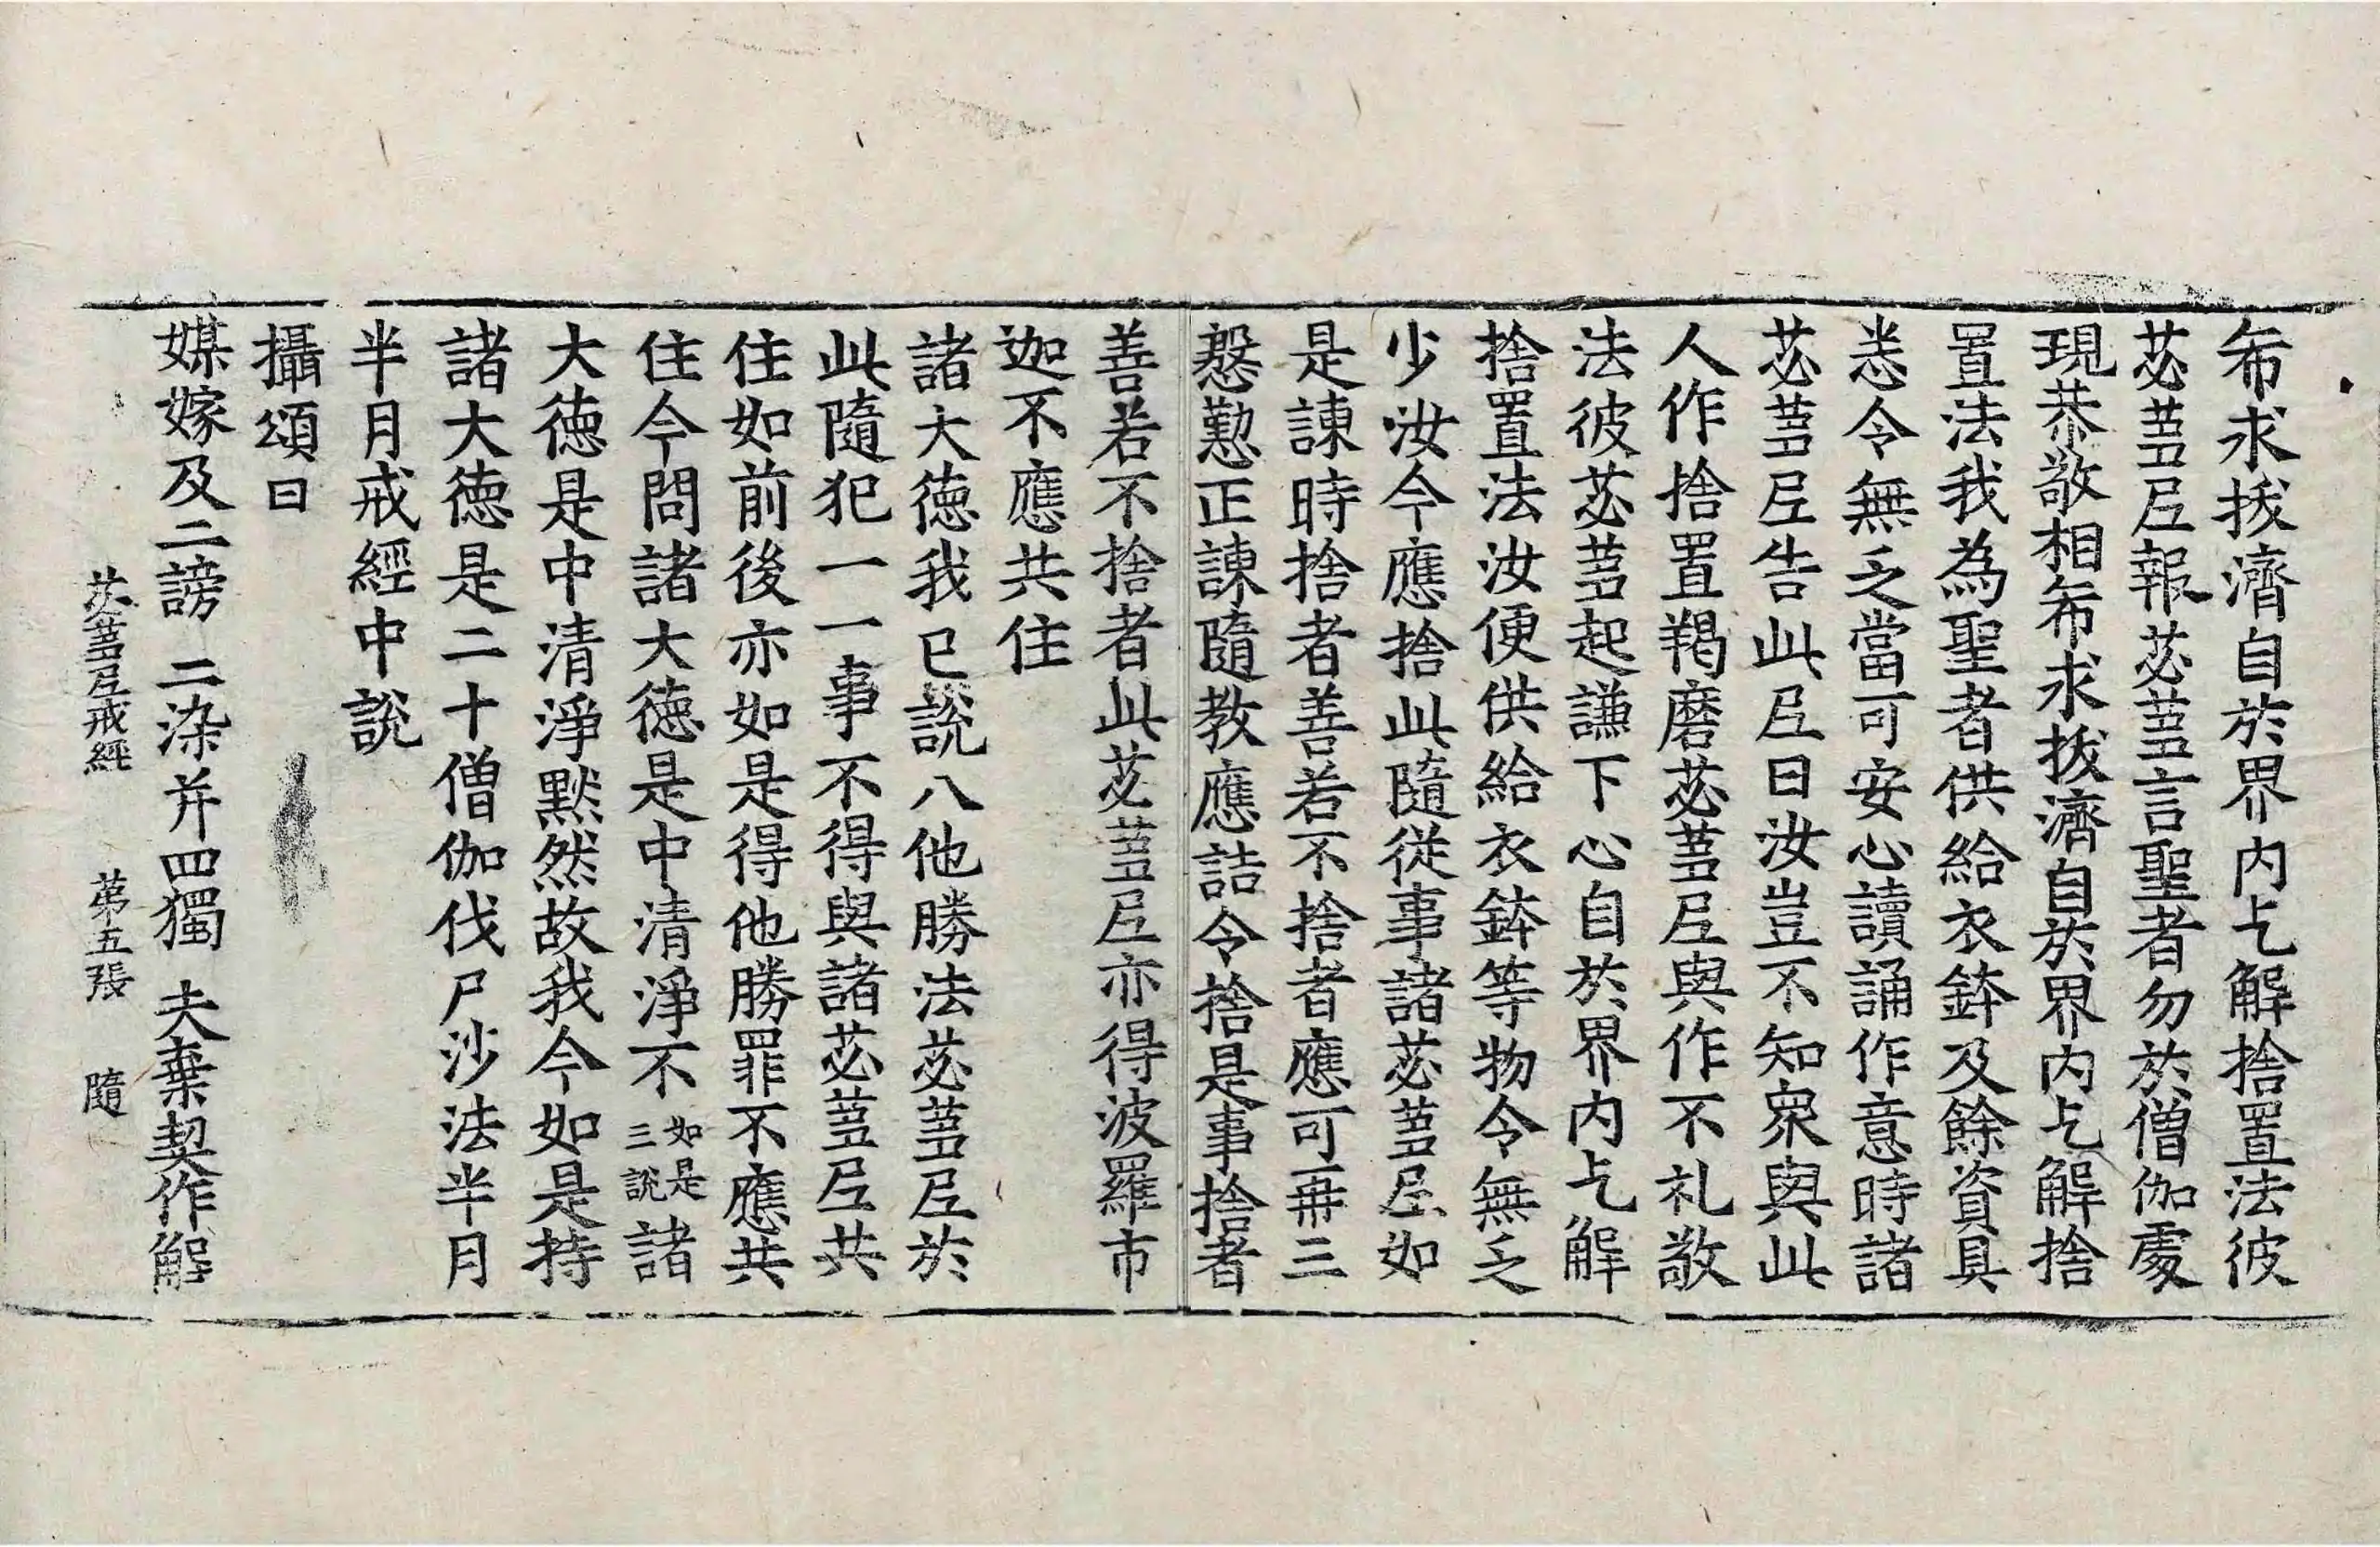 希求拔濟自於界內乞解捨置法彼
苾蒭尼報苾蒭言聖者勿於僧伽處
現恭敬相希求拔濟自於界內乞解捨
置法我為聖者供給衣鉢及餘資具
悉令無乏當可安心讀誦作意時諸
苾蒭尼告此尼曰汝豈不知衆與此
人作捨置羯磨苾蒭尼與作不礼敬
法彼苾蒭起謙下心自於界內乞解
捨置法汝便供給衣鉢等物令無乏
少汝今應捨此隨從事諸苾蒭尼如
是諫時捨者善若不捨者應可再三
慇懃正諫隨教應詰令捨是事捨者
善若不捨者此苾蒭尼亦得波羅市
迦不應共住
諸大德我已說八他勝法苾蒭尼於
此隨犯一一事不得與諸苾蒭尼共
住如前後亦如是得他勝罪不應共
住今問諸大德是中清淨不如是三說諸
大德是中清淨默然故我今如是持
諸大德是二十僧伽伐尸沙法半月
半月戒經中說
攝頌曰
媒嫁及二謗 二染并四獨 夫棄契作解
苾蒭尼戒經 第五張 隨